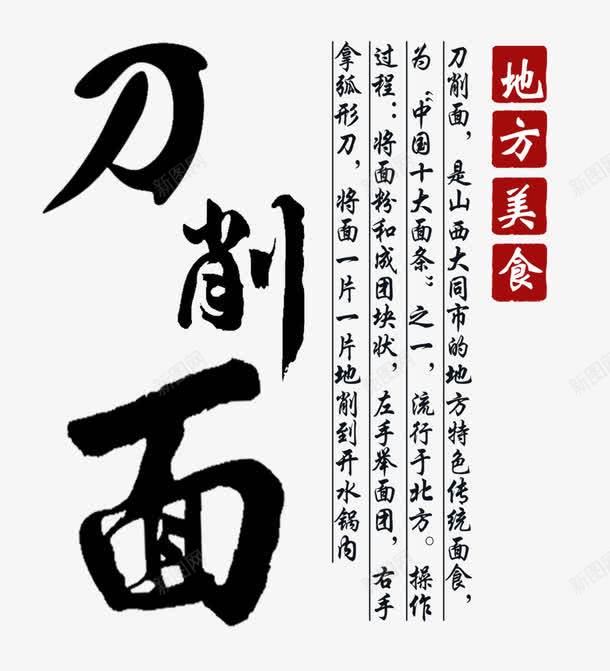 地方美食
刀削面，是山西大同市的地方特色传统面食，
为“中国十大面条”之一，流行于北方。操作
过程：将面粉和成团块状，左手举面团，右手
拿弧形刀，将面一片一片地削到开水锅内
刀削面